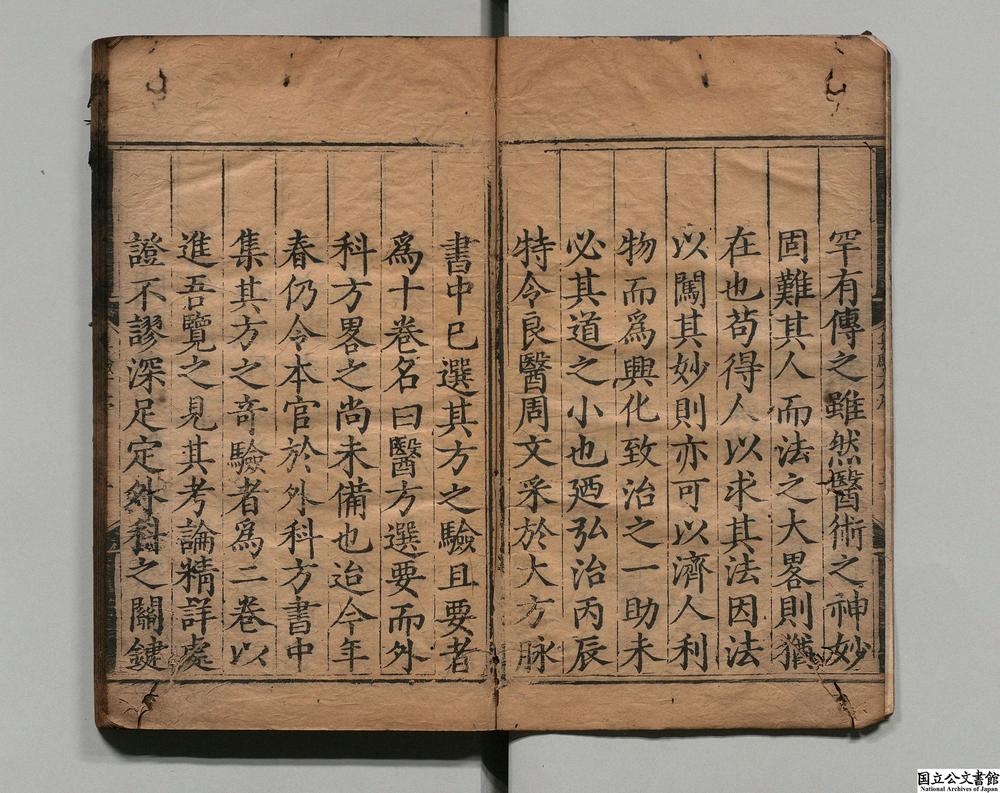 罕有傳之雖然醫術之神妙
固難其人而法之大畧則猶
在也苟得人以求其法因法
以闖其妙則亦可以濟人利
物而爲興化致治之一助未
必其道之小也廼弘治丙辰
特令良醫周文采於大方脉
書中已選其方之驗且要者
爲十卷名曰醫方選要而外
科方畧之尚未備也迨今年
春仍令本官於外科方書中
集其方之竒驗者爲二卷以
進吾覽之見其考論精詳處
證不謬深足定外科之關鍵
国立公文書館
National Archives of Japan